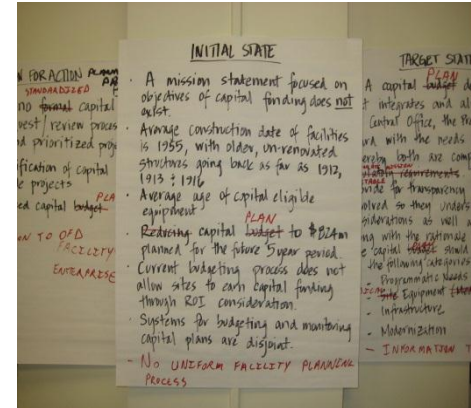 N FOR ACTION
STANDARDIZED
no formal capital
uest/review proces
d prioritized proj
ification of capital
e projects
ed capital budget
PLA
N TO OFD
FACILITY
ENTERPRISE
INITIAL STATE
· A mission statement focused on
objectives of capital funding does not
exist.
· Average construction date of facilities
is 1955, with older, un-renovated
structures going back as far as 1912,
1913 & 1916
· Average age of capital eligible
equipment
PLAN
· Reducing capital budget to $824m
planned for the future 5 year period.
· Current budgeting process does not
allow sites to earn capital funding
through ROI consideration.
· Systems for budgeting and monitoring
capital plans are disjoint.
- NO UNIFORM FACILITY PLANNING
PROCESS
TARGET STAT
PLAN
A capital budget
t integrates and al
Central Office, the
with the needs
ereby both are com
requirements
vide for transparency
olved so they unders
siderations as well
ng with the rationale
capital should
the following categories
- Programmatic Needs
- Site Equipment
- Infrastructure
- Modernization
- INFORMATION